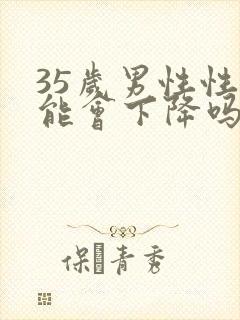 35歲男性性
能會下降吗
保青秀